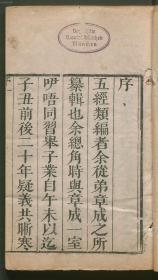 序
五經類編者余從弟章成之所
纂輯也余總角時與章成一室
咿唔同習舉子業自午未以迄
子丑前後二十年疑義共晰寒